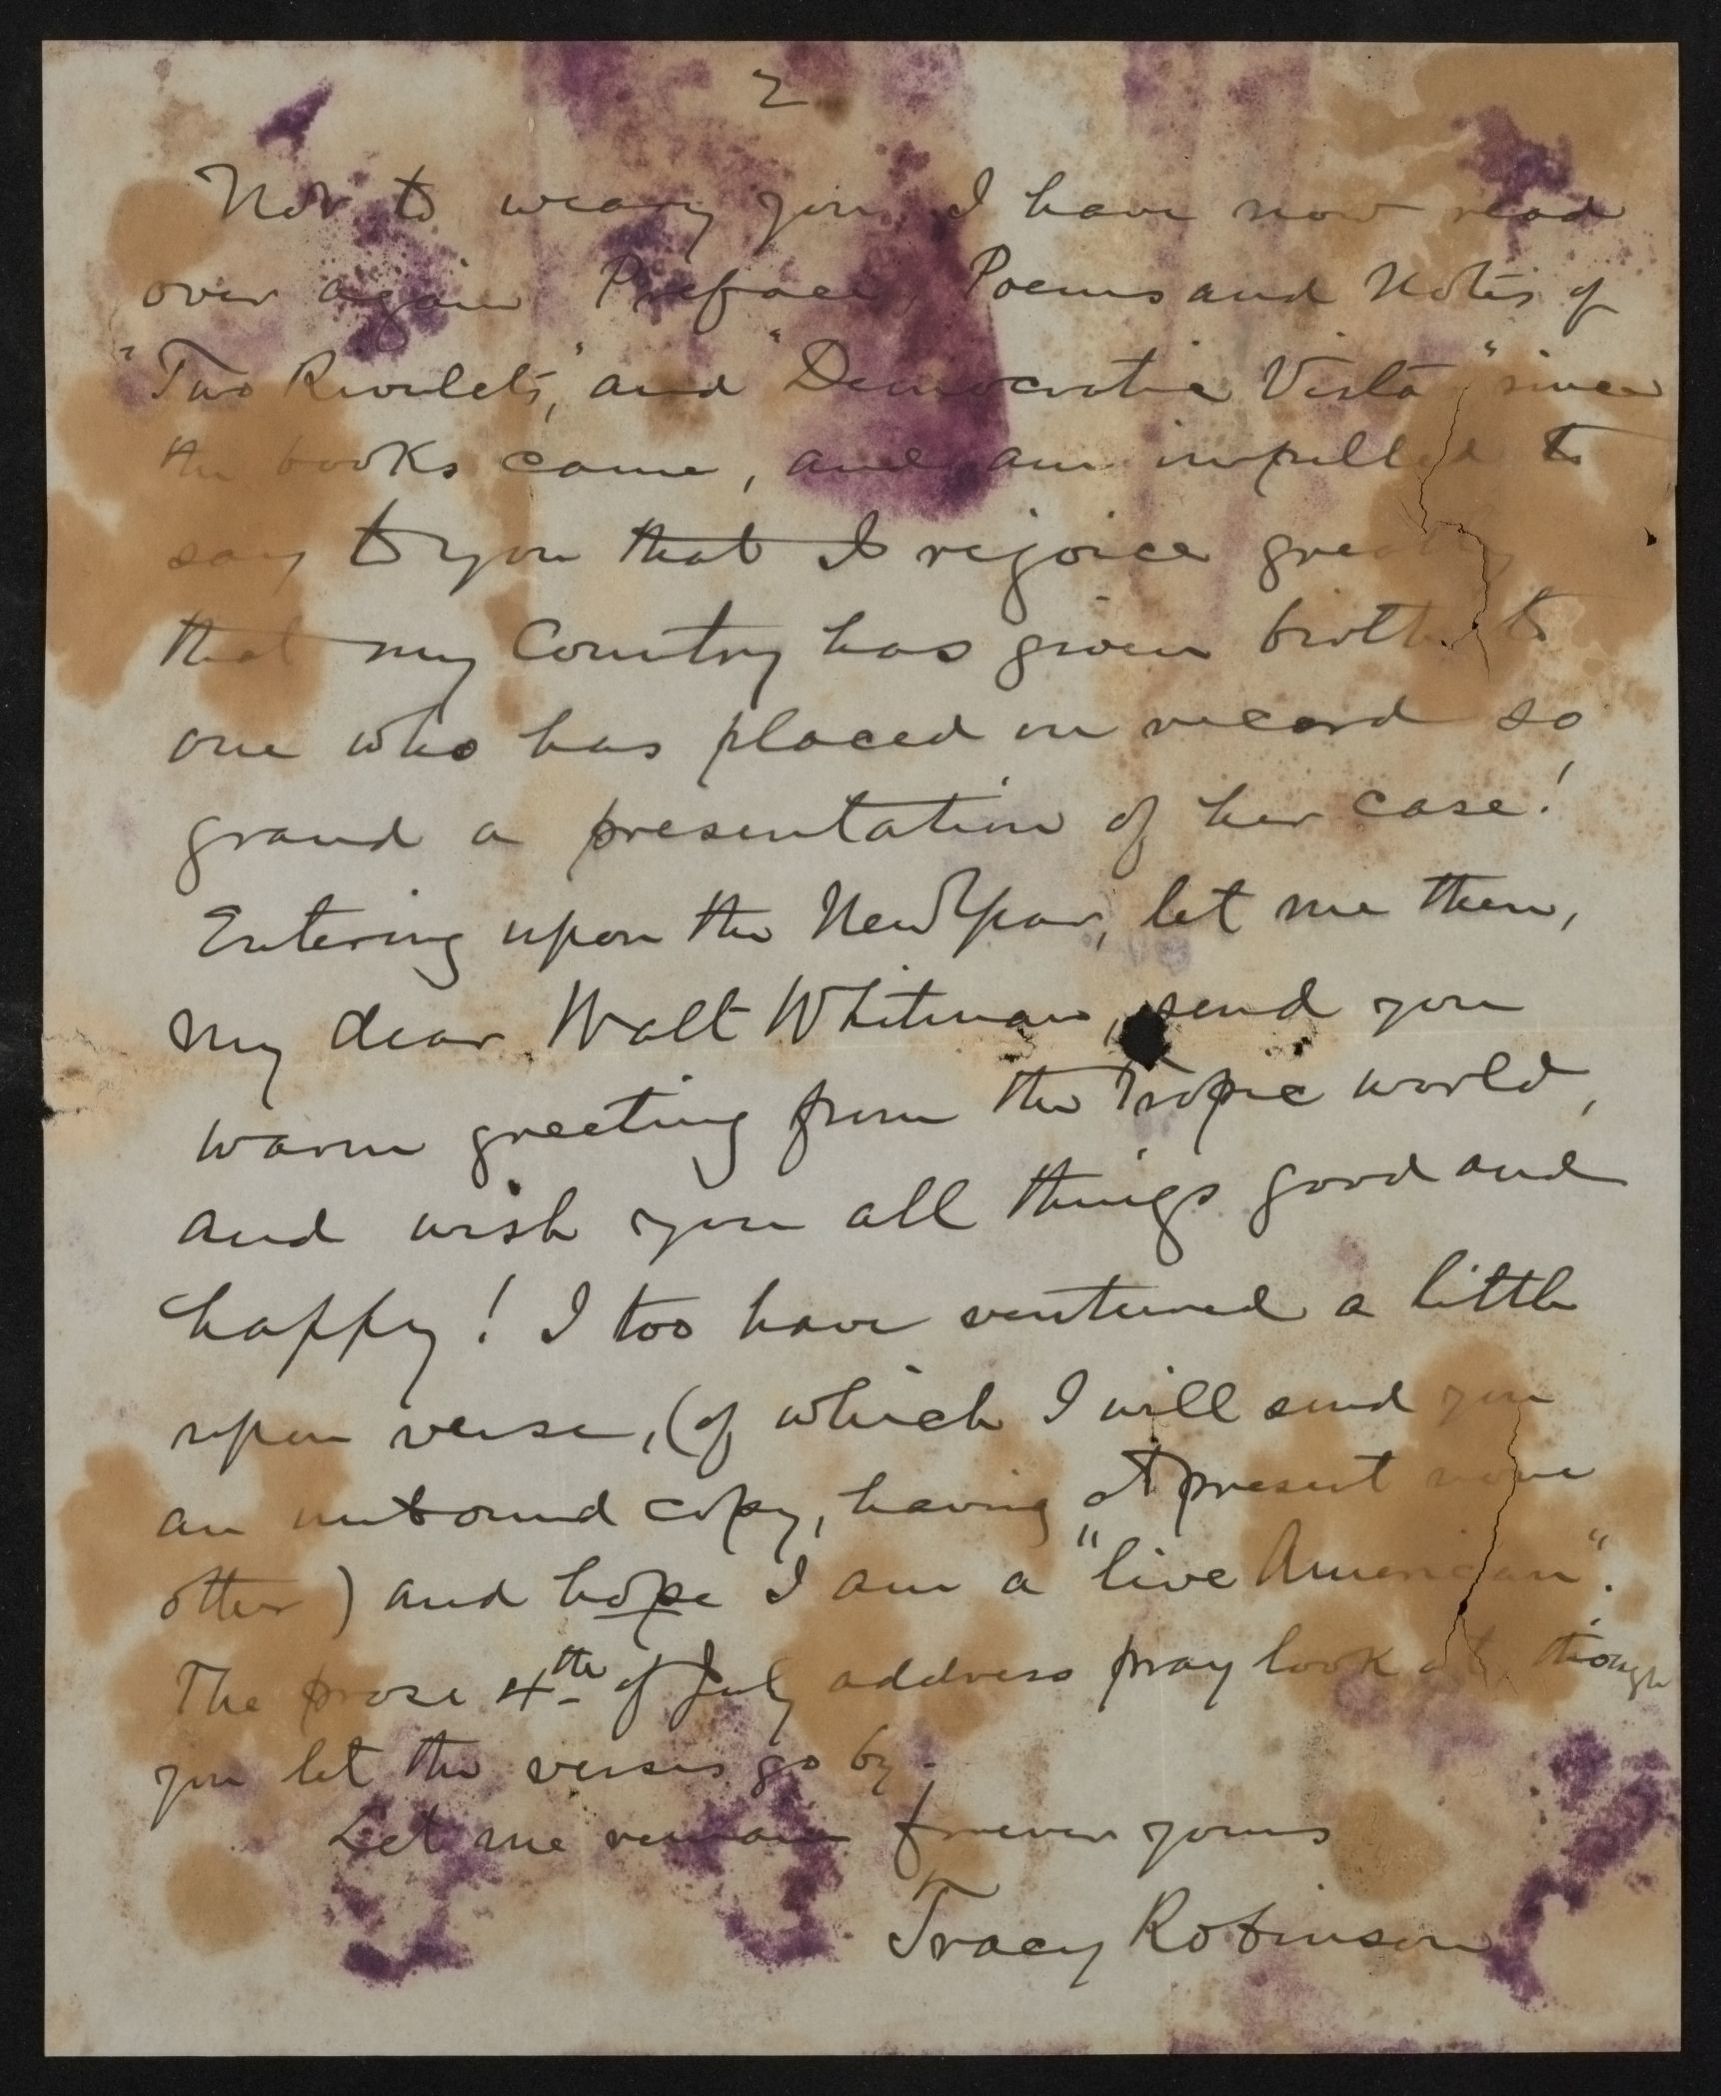 2
Not to weary you, I have now read
over again Preface, Poems and Notes of
"Two Rivulets," and "Democratic Vista" since
the books came, and am impelled to
say to you that I rejoice greatly
that my Country has given birth to
one who has placed on record so
grand a presentation of her case!
Entering upon the New Year, let me then,
my dear Walt Whitman, send you
warm greeting from the Tropic world,
and wish you all things good and
happy! I too have ventured a little
upon verse, (of which I will send you
an unbound copy, having at present none
other) and hope I am a "live American".
The prose 4th of July address pray look at, though
you let the verses go by.
Let me remain forever yours
Tracy Robinson